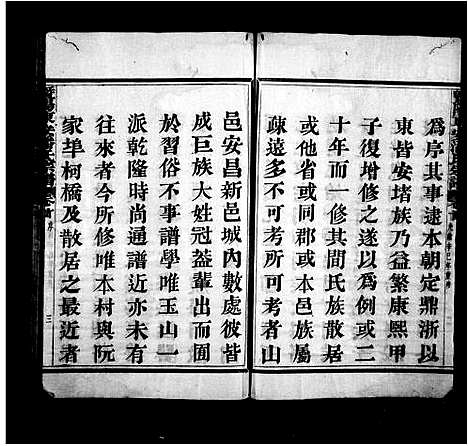 為序其事逮本朝定鼎浙以
東皆安堵族乃益繁康熙甲
子復增修之遂以為例或二
十年而一修其間氏族散居
疎遠多不可考所可考者山
邑安昌新邑城内數處彼皆
成巨族大姓冠蓋輩出而囿
於習俗不事譜學唯玉山一
派乾隆時通譜近亦未有
往來者今所修唯本村與阮
家埠柯橋及散居之最近者
序
三